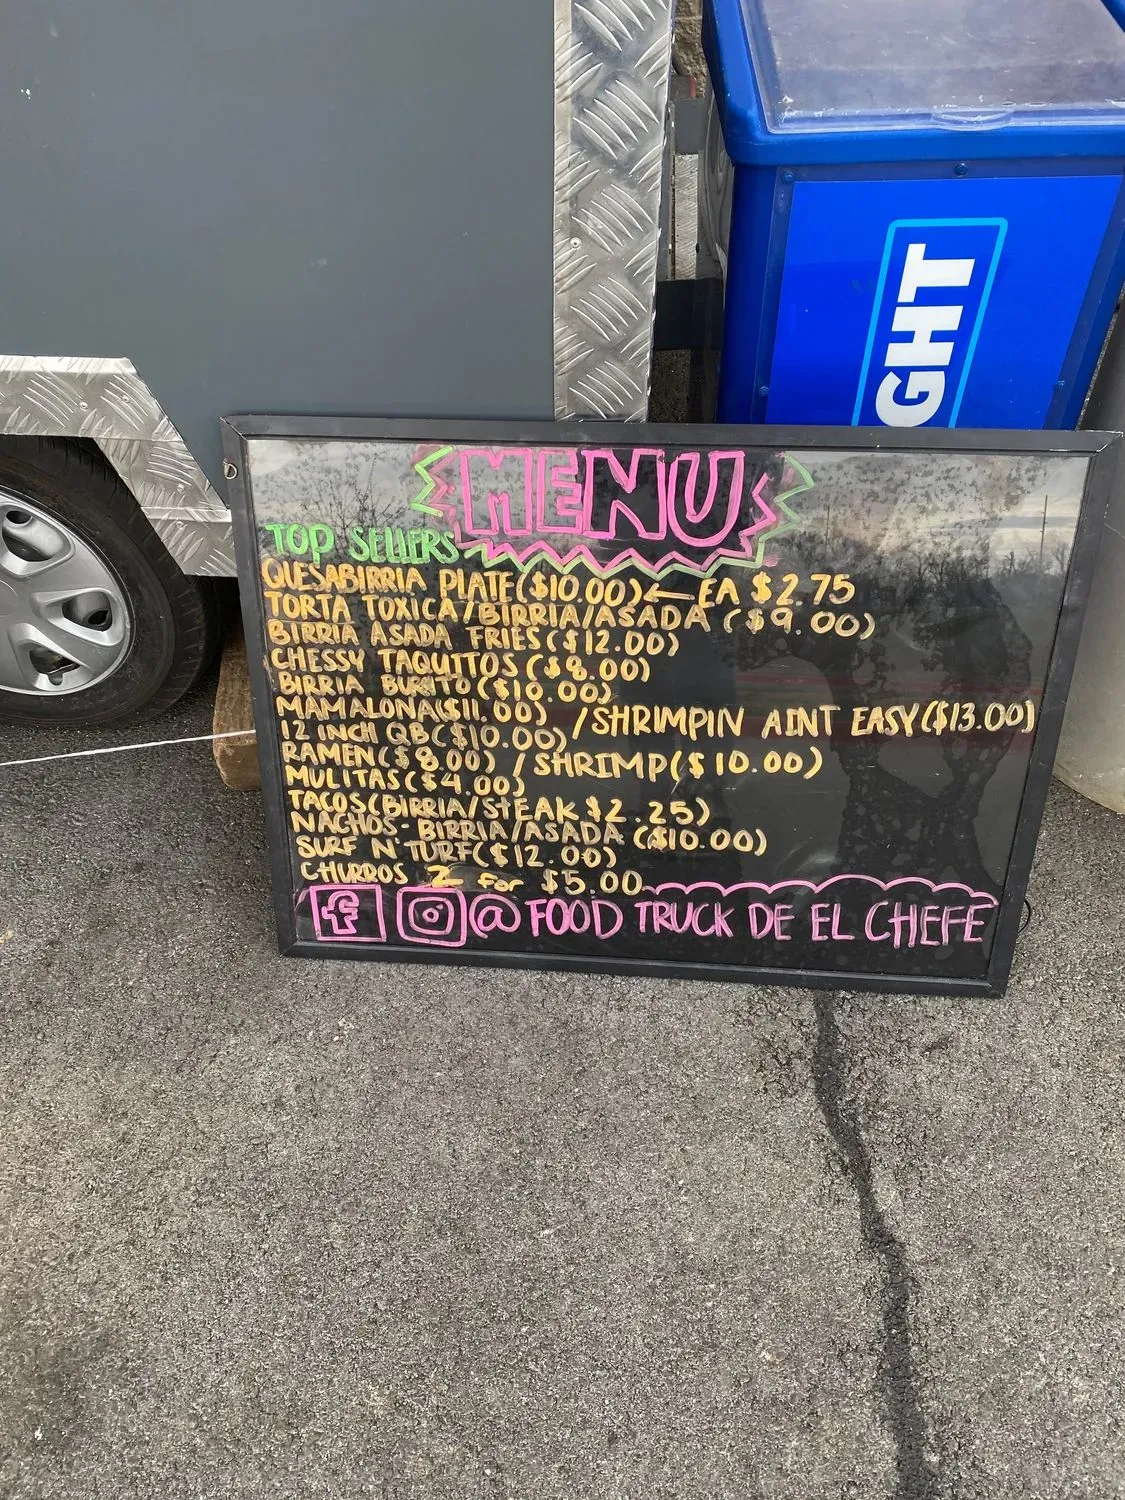 GHT
MENU
TOP SELLERS
QUESABIRRIA PLATE($10.00)← EA $2.75
TORTA TOXICA/BIRRIA/ASADA ($9.00)
BIRRIA ASADA FRIES($12.00)
CHESSY TAQUITOS ($8.00)
BIRRIA BURRITO($10.00)
MAMALONA($11.00) /SHRIMPIN AINT EASY($13.00)
12 INCH QB($10.00)
RAMEN($8.00) /SHRIMP($10.00)
MULITAS($4.00)
TACOS(BIRRIA/STEAK $2.25)
NACHOS-BIRRIA/ASADA ($10.00)
SURF N' TURF($12.00)
CHURROS 2 for $5.00
@FOOD TRUCK DE EL CHEFE